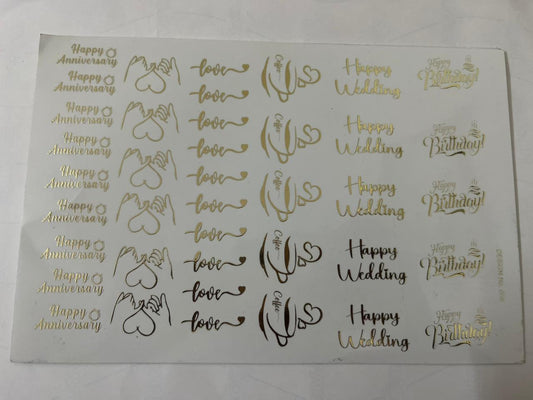 Happy
Anniversary
Happy
Anniversary
Happy
Anniversary
Happy
Anniversary
Happy
Anniversary
Happy
Anniversary
Happy
Anniversary
Happy
Anniversary
Happy
Anniversary
love
love
love
love
love
love
love
love
love
love
Coffee
Coffee
Coffee
Coffee
Coffee
Happy
Wedding
Happy
Wedding
Happy
Wedding
Happy
Wedding
Happy
Wedding
Happy
Birthday!
Happy
Birthday!
Happy
Birthday!
Happy
Birthday!
Happy
Birthday!
DESIGN NO.